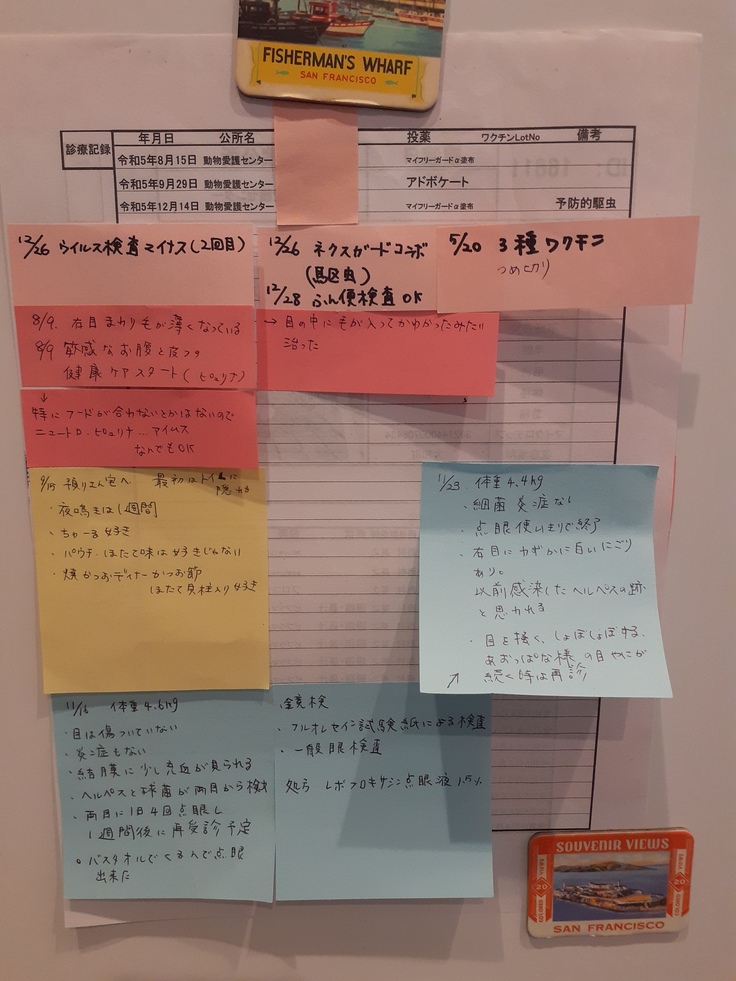 FISHERMAN'S WHARF
SAN FRANCISCO
診療記録
年月日 公所名 投薬 ワクチンLotNo 備考
令和5年8月15日 動物愛護センター マイフリーガードα塗布
令和5年9月29日 動物愛護センター アドボケート
令和5年12月14日 動物愛護センター マイフリーガードα塗布 予防的駆虫
12/26 ウイルス検査マイナス(2回目)
12/26 ネクスガードコンボ
(駆虫)
12/28 ふん便検査OK
5/20 3種ワクチン
つめ切り
8/9. 右目まわり毛が薄くなっている
8/9 敏感なお腹と皮フの
健康ケアスタート(ピュリナ)
→目の中に毛が入ってかゆかったみたい
治った
↓
特にフードが合わないとかはないので
ニュートロ.ピュリナ...アイムス
なんでもOK
預りさん宅へ 最初はトイレに
隠れる
・夜鳴きは1週間
・ちゅーる好き
・パウチ.ほたて味は好きじゃない
・焼かつおディナーかつお節
ほたて貝柱入り好き
11/23 体重4.4kg
・細菌炎症なし
・点眼使いきりで終了
・右目にわずかに白いにごり
あり。
以前感染したヘルペスの跡
と思われる
・目を掻く、しょぼしょぼする、
あおっぱな様の目やにが
続く時は再診
11/16 体重4.6kg
・目は傷ついていない
・炎症もない
・結膜に少し充血が見られる
・ヘルペスと球菌が両目から検出
・両目に1日4回点眼し
1週間後に再受診予定
○バスタオルでくるんで点眼
出来た
鏡検
・フルオレセイン試験紙による検査
・一般眼検査
処方 レボフロキサシン点眼液1.5%
SOUVENIR VIEWS
SAN FRANCISCO